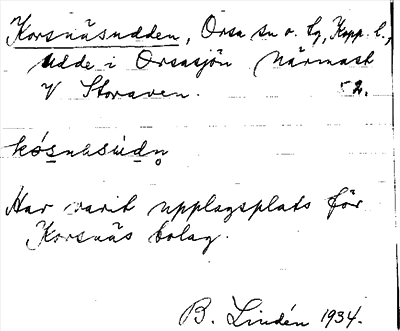 Korsnäsudden, Orsa sn o. tg, Kopp. l.,
udde i Orsasjön närmast
V Storaven. 52.
kósnasùdn̥
Har varit upplagsplats för
Korsnäs bolag.
B. Lindén 1934.